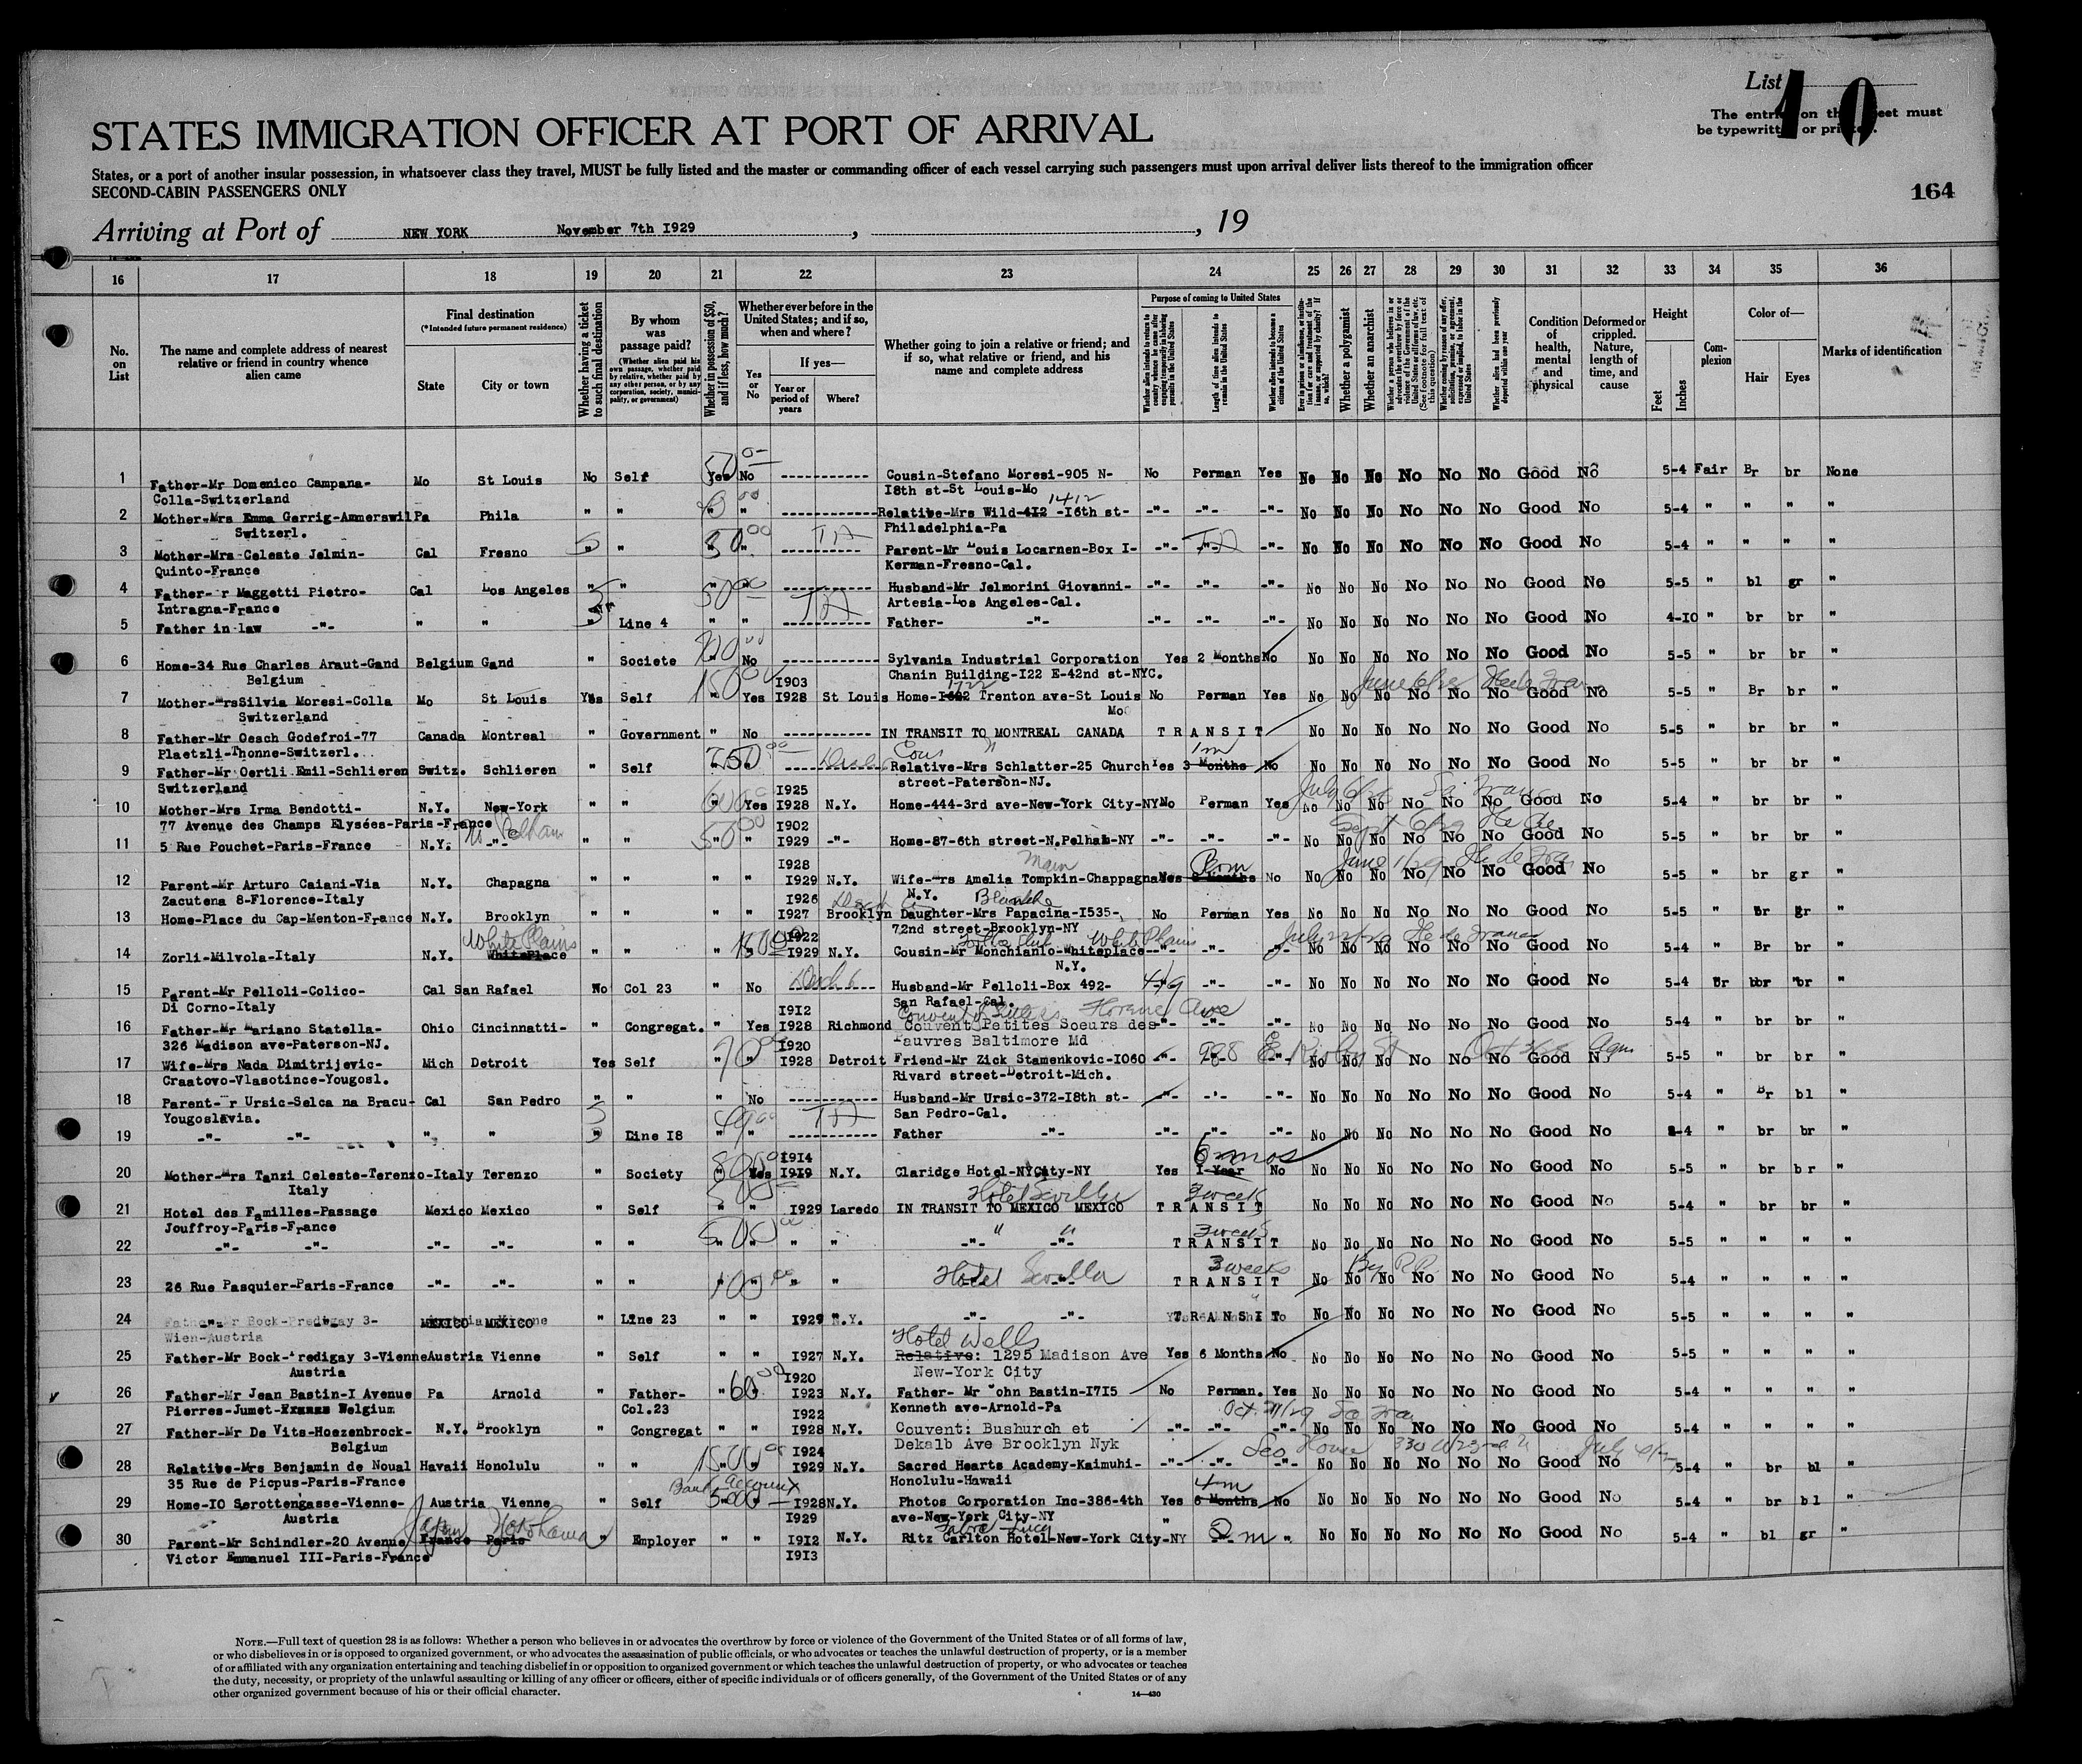 List 10
The entries on this sheet must
be typewritten or printed.
STATES IMMIGRATION OFFICER AT PORT OF ARRIVAL
States, or a port of another insular possession, in whatsoever class they travel, MUST be fully listed and the master or commanding officer of each vessel carrying such passengers must upon arrival deliver lists thereof to the immigration officer
SECOND-CABIN PASSENGERS ONLY
164
Arriving at Port of NEW YORK November 7th I929 , , 19
16 17 18 19 20 21 22 23 24 25 26 27 28 29 30 31 32 33 34 35 36
No. on List
The name and complete address of nearest relative or friend in country whence alien came
Final destination
(*Intended future permanent residence)
State City or town
Whether having a ticket to such final destination
By whom was passage paid?
(Whether alien paid his own passage, whether paid by relative, whether paid by any other person, or by any corporation, society, municipality, or government)
Whether in possession of $50, and if less, how much?
Whether ever before in the United States; and if so, when and where?
Yes or No
If yes—
Year or period of years Where?
Whether going to join a relative or friend; and if so, what relative or friend, and his name and complete address
Purpose of coming to United States
Length of time alien intends to remain in the United States
Whether alien intends to become a citizen of the United States
Whether a polygamist
Whether an anarchist
Condition of health, mental and physical
Deformed or crippled. Nature, length of time, and cause
Height
Feet Inches
Complexion
Color of—
Hair Eyes
Marks of identification
1 Father-Mr Domenico Campana- Mo St Louis No Self Yes No ----------- Cousin-Stefano Moresi-905 N- No Perman Yes No No No No No No Good No 5-4 Fair Br br None
Colla-Switzerland I8th st-St Louis-Mo
2 Mother-Mrs Emma Gerrig-Ammerswil Pa Phila " " " " ----------- Relative-Mrs Wild-4I2 -I6th st- -"- -"- -"- No No No No No No Good No 5-4 " " " "
1412
Switzerl. Philadelphia-Pa
3 Mother-Mrs Celeste Jelmin- Cal Fresno " " 50.00 " ----------- Parent-Mr Louis Locarnen-Box I- -"- -"- -"- No No No No No No Good No 5-4 " " " "
Quinto-France Kerman-Fresno-Cal.
4 Father- r Maggetti Pietro- Cal Los Angeles " " " " ----------- Husband-Mr Jelmorini Giovanni- -"- -"- -"- No No No No No No Good No 5-5 " bl gr "
Intragna-France Artesia-Los Angeles-Cal.
5 Father in law -"- " " " Line 4 " " ----------- Father- -"- -"- -"- -"- No No No No No No Good No 4-I0 " br br "
6 Home-34 Rue Charles Araut-Gand Belgium Gand " Societe " No ----------- Sylvania Industrial Corporation Yes 2 Months No No No No No No No Good No 5-5 " br br "
Belgium Chanin Building-I22 E-42nd st-NYC.
I903
7 Mother-MrsSilvia Moresi-Colla Mo St Louis Yes Self " Yes I928 St Louis Home-I Trenton ave-St Louis No Perman Yes No No No No No No Good No 5-5 " Br br "
Switzerland Mo
8 Father-Mr Oesch Godefroi-77 Canada Montreal " Government " No ----------- IN TRANSIT TO MONTREAL CANADA T R A N S I T No No No No No No Good No 5-5 " br br "
Plaetzli-Thonne-Switzerl.
9 Father-Mr Oertli Emil-Schlieren Switz. Schlieren " Self ----------- Relative-Mrs Schlatter-25 Church Yes 3 Months No No No No No No No Good No 5-5 " br br "
1m
Switzerland street-Paterson-NJ.
I925
10 Mother-Mrs Irma Bendotti- N.Y. New-York " " " Yes I928 N.Y. Home-444-3rd ave-New-York City-NY No Perman Yes No No No No No No Good No 5-4 " br br "
77 Avenue des Champs Elysées-Paris-France I902
N. Pelham
11 5 Rue Pouchet-Paris-France N.Y. -"- " " " " I929 -"- Home-87-6th street-N.Pelham-NY -"- -"- -"- No No No No No No Good No 5-5 " br br "
I928 Main Perm
12 Parent-Mr Arturo Caiani-Via N.Y. Chapagna " " " " I929 N.Y. Wife-Mrs Amelia Tompkin-Chappagna Yes Months No No No No No No No Good No 5-5 " br gr "
Zacutena 8-Florence-Italy I926 N.Y. Blanche
13 Home-Place du Cap-Menton-France N.Y. Brooklyn " " " " I927 Brooklyn Daughter-Mrs Papacina-I535- No Perman Yes No No No No No No Good No 5-5 " Br gr "
72nd street-Brooklyn-NY
White Plains I922 White Plains
14 Zorli-Milvola-Italy N.Y. WhitePlace " " " I929 N.Y. Cousin-Mr Monchianlo-Whiteplace -"- -"- -"- No No No No No No Good No 5-4 " Br br "
N.Y.
15 Parent-Mr Pelloli-Colico- Cal San Rafael No Col 23 " No ----------- Husband-Mr Pelloli-Box 492- -"- -"- No No No No No No Good No 5-4 Br br "
Di Corno-Italy San Rafael-Cal.
I9I2
16 Father-Mr Mariano Statella- Ohio Cincinnatti- " Congregat. " Yes I928 Richmond Couvent Petites Soeurs des -"- -"- -"- No No No No No No Good No 5-4 " br br "
326 Madison ave-Paterson-NJ. I920 Pauvres Baltimore Md
17 Wife-Mrs Nada Dimitrijevic- Mich Detroit Yes Self " I928 Detroit Friend-Mr Zick Stamenkovic-I060 -"- -"- -"- No No No No No No Good No 5-5 " br br "
Craatovo-Vlasotince-Yougosl. Rivard street-Detroit-Mich.
18 Parent- r Ursic-Selca na Bracu- Cal San Pedro " " " No ----------- Husband-Mr Ursic-372-I8th st- -"- -"- -"- No No No No No No Good No 5-4 " Br bl "
Yougoslavia. San Pedro-Cal.
19 -"- -"- " " " Line I8 " " ----------- Father -"- -"- -"- -"- No No No No No No Good No -4 " br br "
I9I4 6 mos
20 Mother-Mrs Tanzi Celeste-Terenzo-Italy Terenzo " Society " Yes I9I9 N.Y. Claridge Hotel-NYCity-NY Yes I Year No No No No No No No Good No 5-5 " br br "
Italy Hotel Seville 3 weeks
21 Hotel des Familles-Passage Mexico Mexico " Self " " I929 Laredo IN TRANSIT TO MEXICO MEXICO T R A N S I T No No No No No No Good No 5-4 " br br "
Jouffroy-Paris-France 3 weeks
22 -"- -"- -"- -"- " " " " " " -"- -"- T R A N S I T No No No No No No Good No 5-5 " " " "
3 weeks
23 26 Rue Pasquier-Paris-France -"- -"- " " " " " " Hotel Seville T R A N S I T No No No No No No Good No 5-4 " " " "
24 Father-Mr Bock-Predigay 3- MEXICO MEXICO " Line 23 " " I929 N.Y. -"- -"- T R A N S I T No No No No No No Good No 5-5 " " " "
Wien-Austria Hotel Wells
25 Father-Mr Bock-Predigay 3-Vienne Austria Vienne " Self " " I927 N.Y. Relative: 1295 Madison Ave Yes 6 Months No No No No No No No Good No 5-5 " " " "
Austria I920 New-York City
26 Father-Mr Jean Bastin-I Avenue Pa Arnold " Father- " I923 N.Y. Father- Mr John Bastin-I7I5 No Perman. Yes No No No No No No Good No 5-4 " " " "
Pierres-Jumet- Belgium Col.23 I922 Kenneth ave-Arnold-Pa
27 Father-Mr De Vits-Hoezenbrock- N.Y. Brooklyn " Congregat " " I928 N.Y. Couvent: Bushurch et -"- -"- -"- No No No No No No Good No 5-4 " " " "
Belgium I924 Dekalb Ave Brooklyn Nyk
28 Relative-Mrs Benjamin de Noual Hawaii Honolulu " " " I929 N.Y. Sacred Hearts Academy-Kaimuhi- -"- -"- -"- No No No No No No Good No 5-4 " br bl "
35 Rue de Picpus-Paris-France Bank account Honolulu-Hawaii 4m
29 Home-I0 Serottengasse-Vienne- Austria Vienne " Self I928 N.Y. Photos Corporation Inc-386-4th Yes 6 Months No No No No No No No Good No 5-4 " br bl "
Austria I929 ave-New-York City-NY
Japan Yokohama
30 Parent-Mr Schindler-20 Avenue France Paris " Employer " " I9I2 N.Y. Ritz Carlton Hotel-New-York City-NY " " No No No No No No Good No 5-4 " bl gr "
Victor Emmanuel III-Paris-France I9I3
NOTE.—Full text of question 28 is as follows: Whether a person who believes in or advocates the overthrow by force or violence of the Government of the United States or of all forms of law,
or who disbelieves in or is opposed to organized government, or who advocates the assassination of public officials, or who advocates or teaches the unlawful destruction of property, or is a member
of or affiliated with any organization entertaining and teaching disbelief in or opposition to organized government or which teaches the unlawful destruction of property, or who advocates or teaches
the duty, necessity, or propriety of the unlawful assaulting or killing of any officer or officers, either of specific individuals or of officers generally, of the Government of the United States or of any
other organized government because of his or their official character.
14—430